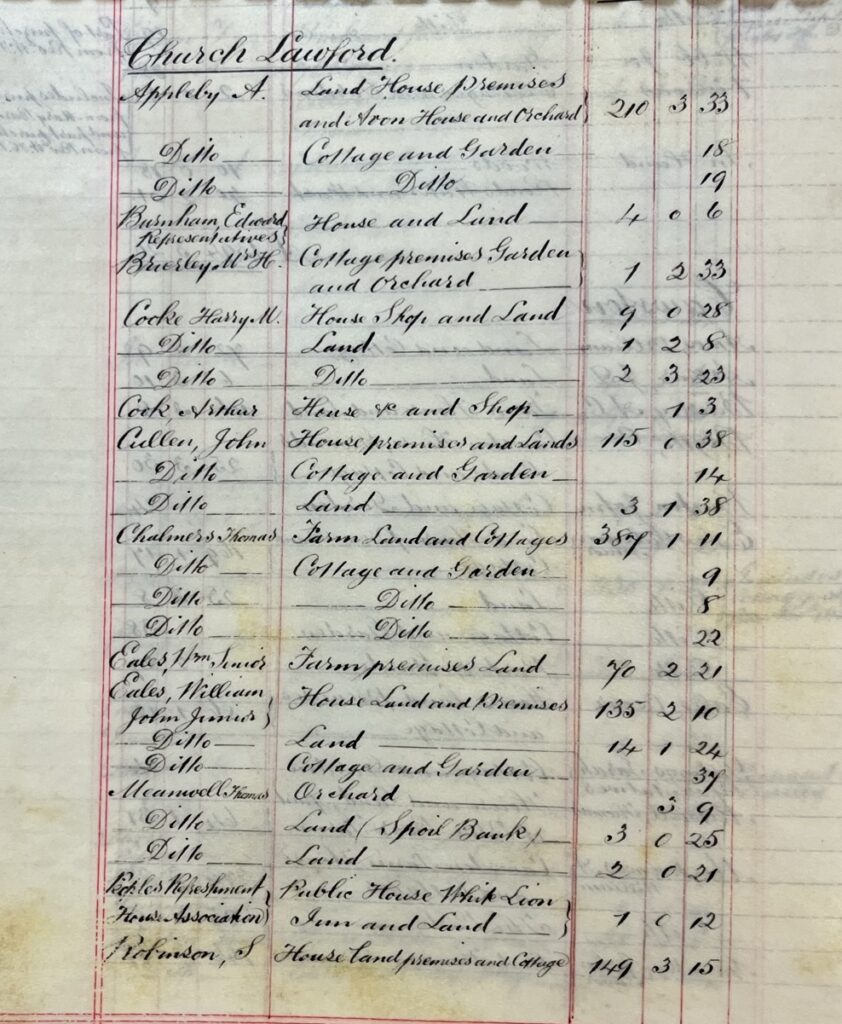 Church Lawford.
Appleby A. Land House Premises
and Avon House and Orchard } 210 3 33
Ditto Cottage and Garden 18
Ditto Ditto 19
Burnham, Edward House and Land 4 0 6
Representatives }
Brierley Mrs H. Cottage premises Garden
and Orchard } 1 2 33
Cooke Harry M. House Shop and Land 9 0 28
Ditto Land 1 2 8
Ditto Ditto 2 3 23
Cook Arthur House & and Shop 1 3
Cullen, John House premises and Lands 115 0 38
Ditto Cottage and Garden 14
Ditto Land 3 1 38
Chalmers Thomas Farm Land and Cottages 387 1 11
Ditto Cottage and Garden 9
Ditto Ditto 8
Ditto Ditto 22
Eales, Wm Senior Farm premises Land 70 2 21
Eales, William House Land and Premises 135 2 10
John Junior }
Ditto Land 14 1 24
Ditto Cottage and Garden 37
Meanwell Thomas Orchard 3 9
Ditto Land (Spoil Bank) 3 0 25
Ditto Land 2 0 21
Refreshment Public House White Lion
House Association } Inn and Land } 0 12
Robinson, S House land premises and Cottage 149 3 15